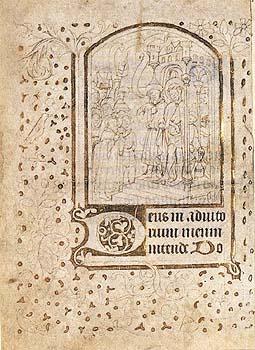 Deus in adiuto
rium meum
intende Do